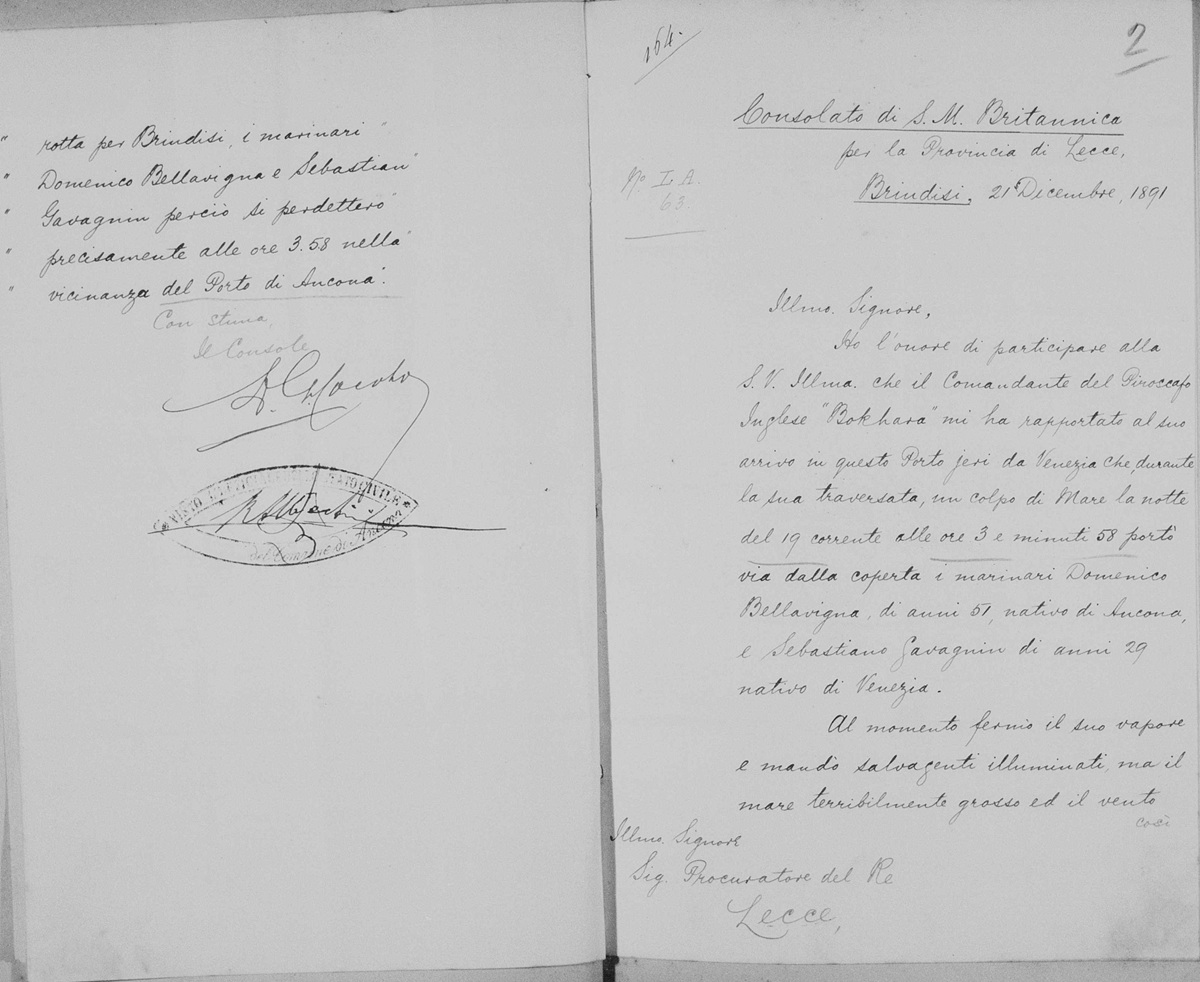 " rotta per Brindisi, i marinari "
" Domenico Bellavigna e Sebastian "
" Gavagnin perciò si perdettero
" precisamente alle ore 3.58 nella "
" vicinanza del Porto di Ancona".
Con stima,
Il Console
CIVILE
del Comune di Ancona
164.
2
Consolato di S. M. Britannica
per la Provincia di Lecce,
No. I. A.
63.
Brindisi, 21 Dicembre, 1891
Illmo. Signore,
Ho l'onore di participare alla
S. V. Illma. che il Comandante del Piroccafo
Inglese "Bokhara" mi ha rapportato al suo
arrivo in questo Porto jeri da Venezia che, durante
la sua traversata, un colpo di Mare la notte
del 19 corrente alle ore 3 e minuti 58 portò
via dalla coperta i marinari Domenico
Bellavigna, di anni 51, nativo di Ancona,
e Sebastiano Gavagnin di anni 29
nativo di Venezia.
Al momento fermò il suo vapore
e mandò salvagenti illuminati, ma il
mare terribilmente grosso ed il vento
così
Illmo. Signore
Sig. Procuratore del Re
Lecce,